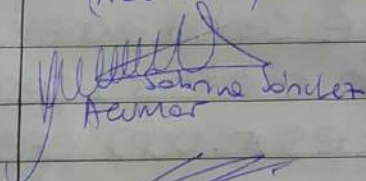 Sabrina Sánchez
Acumar